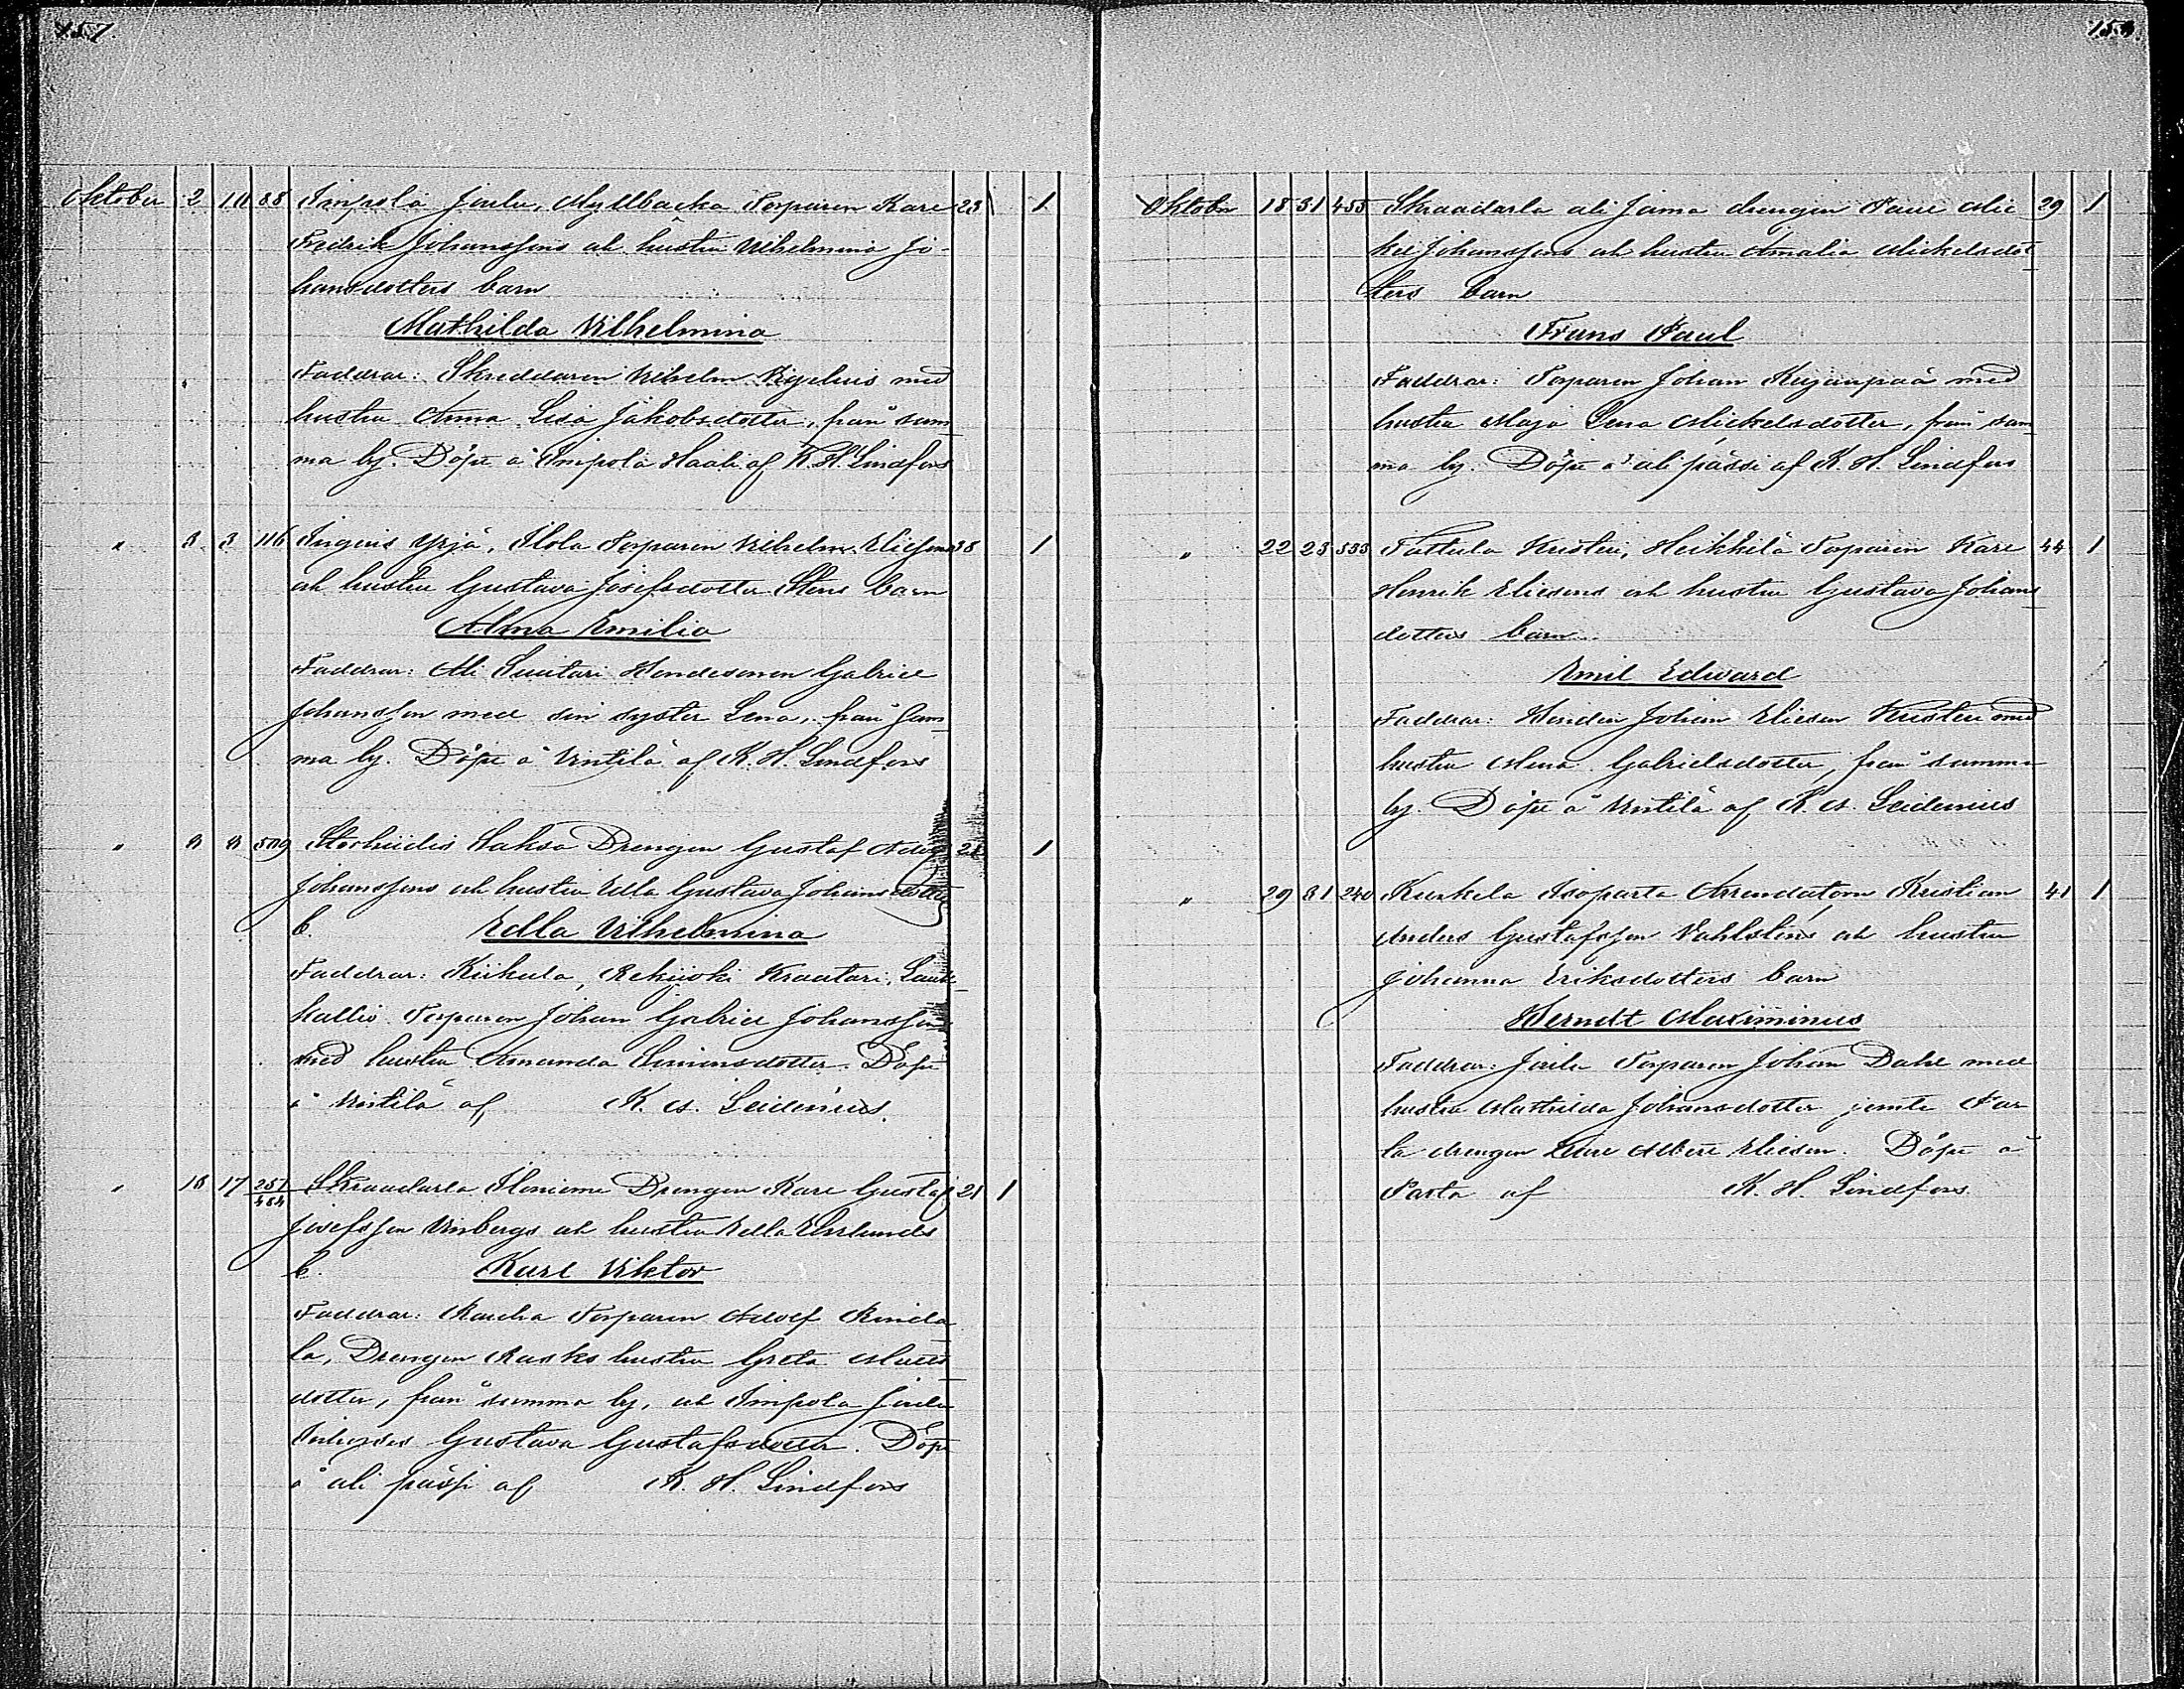 157.
Oktober 2 10 88 Impola Juulu, Myllbacka Torparen Karl 23 1
Fredrik Johanssons och hustru Vilhelmina Jo-
hansdotters barn
Mathilda Vilhelmina
Faddrar: Skreddaren Vilhelm Vigelius med
hustru Anna Lisa Jakobsdotter, från sam
ma by. Döpt å Impola Haali af K. H. Lindfors
" 3 3 116 Ingeris Yrjä, Ilola Torparen Vilhelm Eliesons 38 1
och hustru Gustava Josefsdotter Stens barn
Alma Emilia
Faddrar: Ali Suutari Hemdesonen Gabriel
Johansson med sin syster Lena, från sam
ma by. Döpt å Untila af K. H. Lindfors
" 8 8 509 Haksa Drengen Gustaf Adolf 21 1
Johanssons och hustru Edla Gustava Johansdotters
b. Edla Vilhelmina
Faddrar: Kiikula, Rekijoki Kraatari,
kallio Torparen Johan Gabriel Johansson
med hustru Amanda Simonsdotter. Döpt
å Untila af K. A. Leidenius.
" 16 17 251 Skraadarla Drengen Karl Gustaf 21 1
484
Josefsson Vinbergs och hustru Edla Ehrlunds
b. Karl Viktor
Faddrar: Torparen Adolf Rinda
la, Drengen Rasks hustru Greta Matts
dotter, från samma by, och Impola Juulu
Gustava Gustafsdotter. Döpt
å ali pässi af K. H. Lindfors
158.
Oktober 18 31 455 Skraadarla ali Jama drengen Karl Mic 29 1
kel Johanssons och hustru Amalia Mickelsdot
ters barn
Frans Paul
Faddrar: Torparen Johan Kujanpää med
hustru Maja Lena Mickelsdotter, från sam
ma by. Döpt å ali pässi af K. H. Lindfors
" 22 23 533 Tattula Knuters, Heikkilä Torparen Karl 44 1
Henrik Eliesons och hustru Gustava Johans
dotters barn
Emil Edvard
Faddrar: Johan Elieson med
hustru Mina Gabrielsdotter, från samma
by. Döpt å Untila af K. A. Leidenius
" 29 31 240 Kurkela Isoparta Arrendatorn Kristian 41 1
Anders Gustafsson Vahlsténs och hustru
Johanna Eriksdotters barn
Berndt Maximinus
Faddrar: Juulu Torparen Johan Dahl med
hustru Mathilda Johansdotter jemte Par
ta drengen Karl Albert Elieson. Döpt å
Parta af K. H. Lindfors